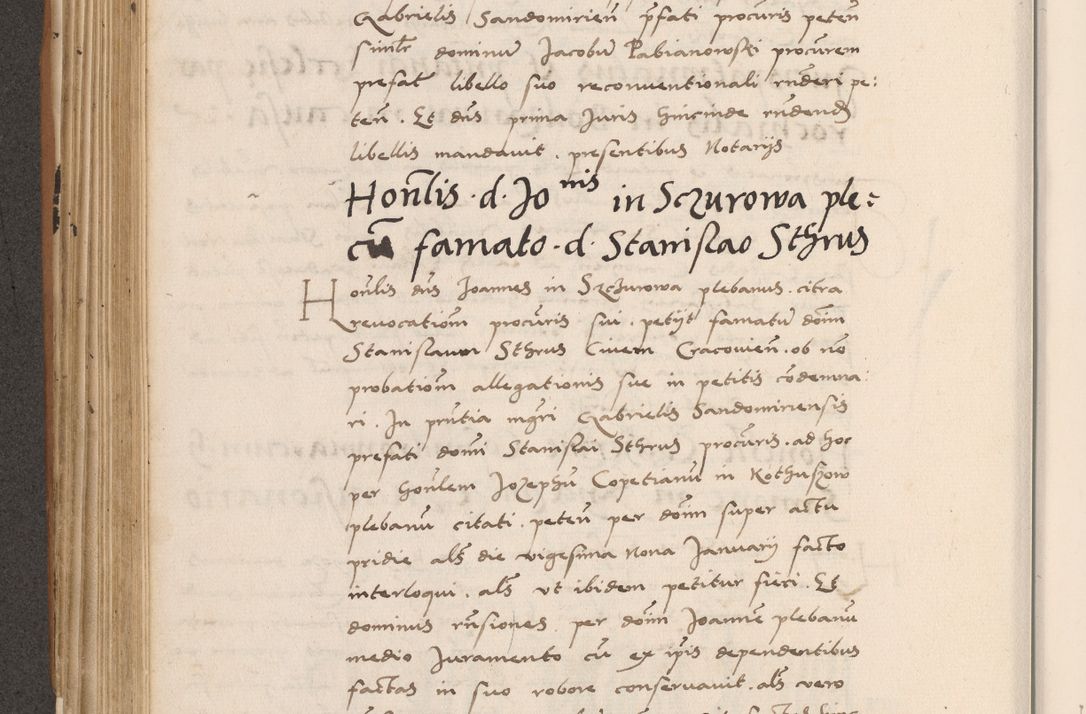 Gabrielis Sandomirien̄ p̄fati procūris peten̄
simlr̄ dominū Jacobū Pabianowski procūrem
prefat̄ libello suo reconventionali rn̄deri pe:
ten̄ Et dn̄s prima Juris hincinde rn̄dend̄
libellis mandavit. presentibus Notarijs
Hon̄lis · d · Joñis in Sczurowa ple:
cū famato · d · Stanislao Sthrus
Honn̄lis dn̄s Joannes in Szczurowa plebanus. citra
revocatiom̄ procūris sui. petijt famatū dom̄
Stanislaum Sthrus Civem Cracovien̄. ob nō
probatiom̄ allegationis sue in petitis cōdemna
ri. In prn̄tia mgr̄i Gabrielis Sandomiriensis
prefati domī Stanislai Sthrus procūris. ad hoc
per honn̄lem Jozephū Copetianū in Kothuszow
plebanū citati. peten̄ per dom̄ super actu
pridie als̄ die vigesima nona Januarij facto
interloqui. als̄ ut ibidem petitur fieri. Et
dominus rn̄siones per dom̄ Joannē plebanū
medio Juramento cū ex ip̄is dependentibus
factas in suo robore conservavit. als̄ vero